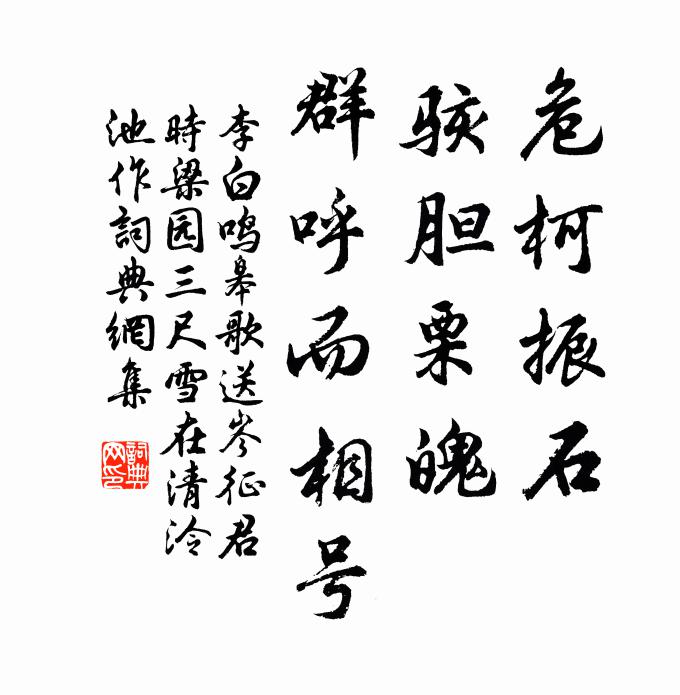 危柯振石
骇胆栗魄
群呼而相号
李白鸣皋歌送岑征君
時梁园三尺雪在清泠
池作詞典網集
詞典
网印